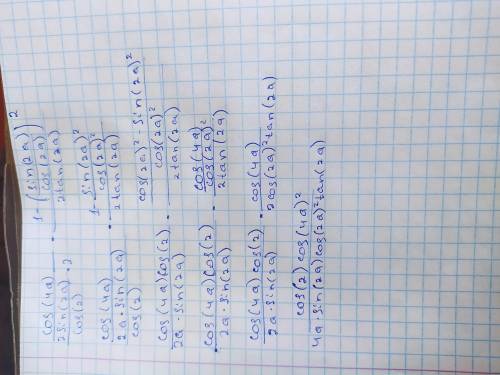 cos(4a) / (2sin(2a)·2 / cos(2)) · (1-(sin(2a)/cos(2a))²) / 2tan(2a)
cos(4a) / (2a·sin(2a) / cos(2)) · (1-sin(2a)²/cos(2a)²) / 2tan(2a)
cos(4a)cos(2) / 2a·sin(2a) · (cos(2a)²-sin(2a)² / cos(2a)²) / 2tan(2a)
cos(4a)cos(2) / 2a·sin(2a) · (cos(4a) / cos(2a)²) / 2tan(2a)
cos(4a)cos(2) / 2a·sin(2a) · cos(4a) / 2cos(2a)²tan(2a)
cos(2)cos(4a)² / 4a·sin(2a)cos(2a)²tan(2a)